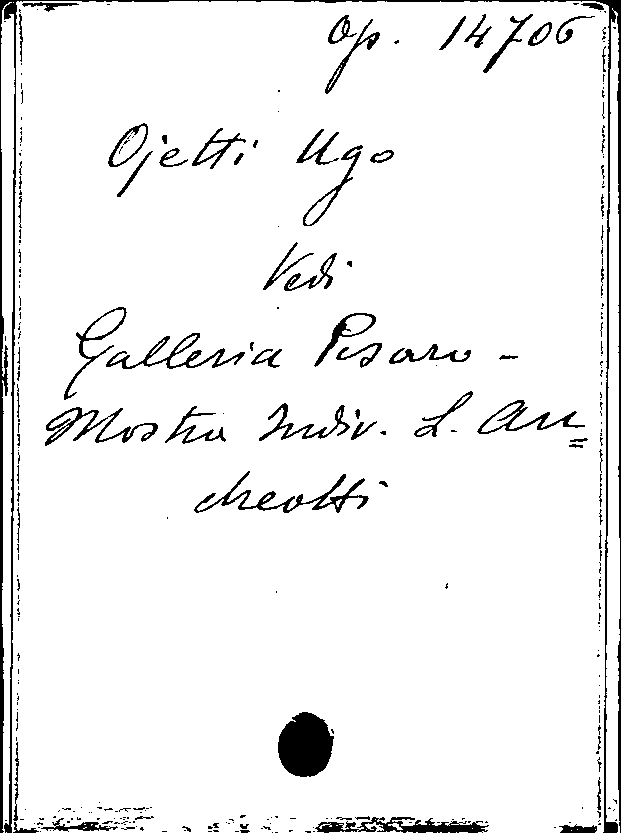 Op. 14706
Ojetti Ugo
Vedi
Galleria Pesaro -
Mostra Indiv. L. An=
dreotti